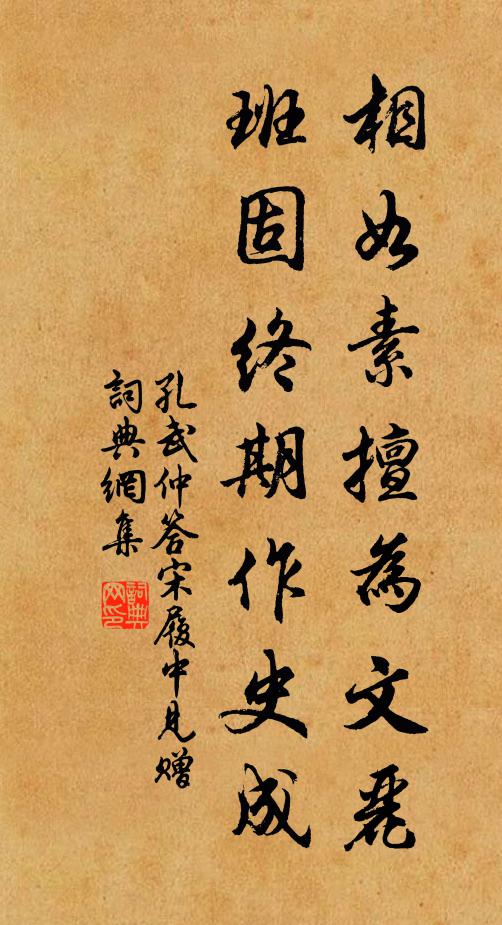 相如素擅為文麗
班固終期作史成
孔武仲答宋履中見贈
詞典網集
詞典
网印